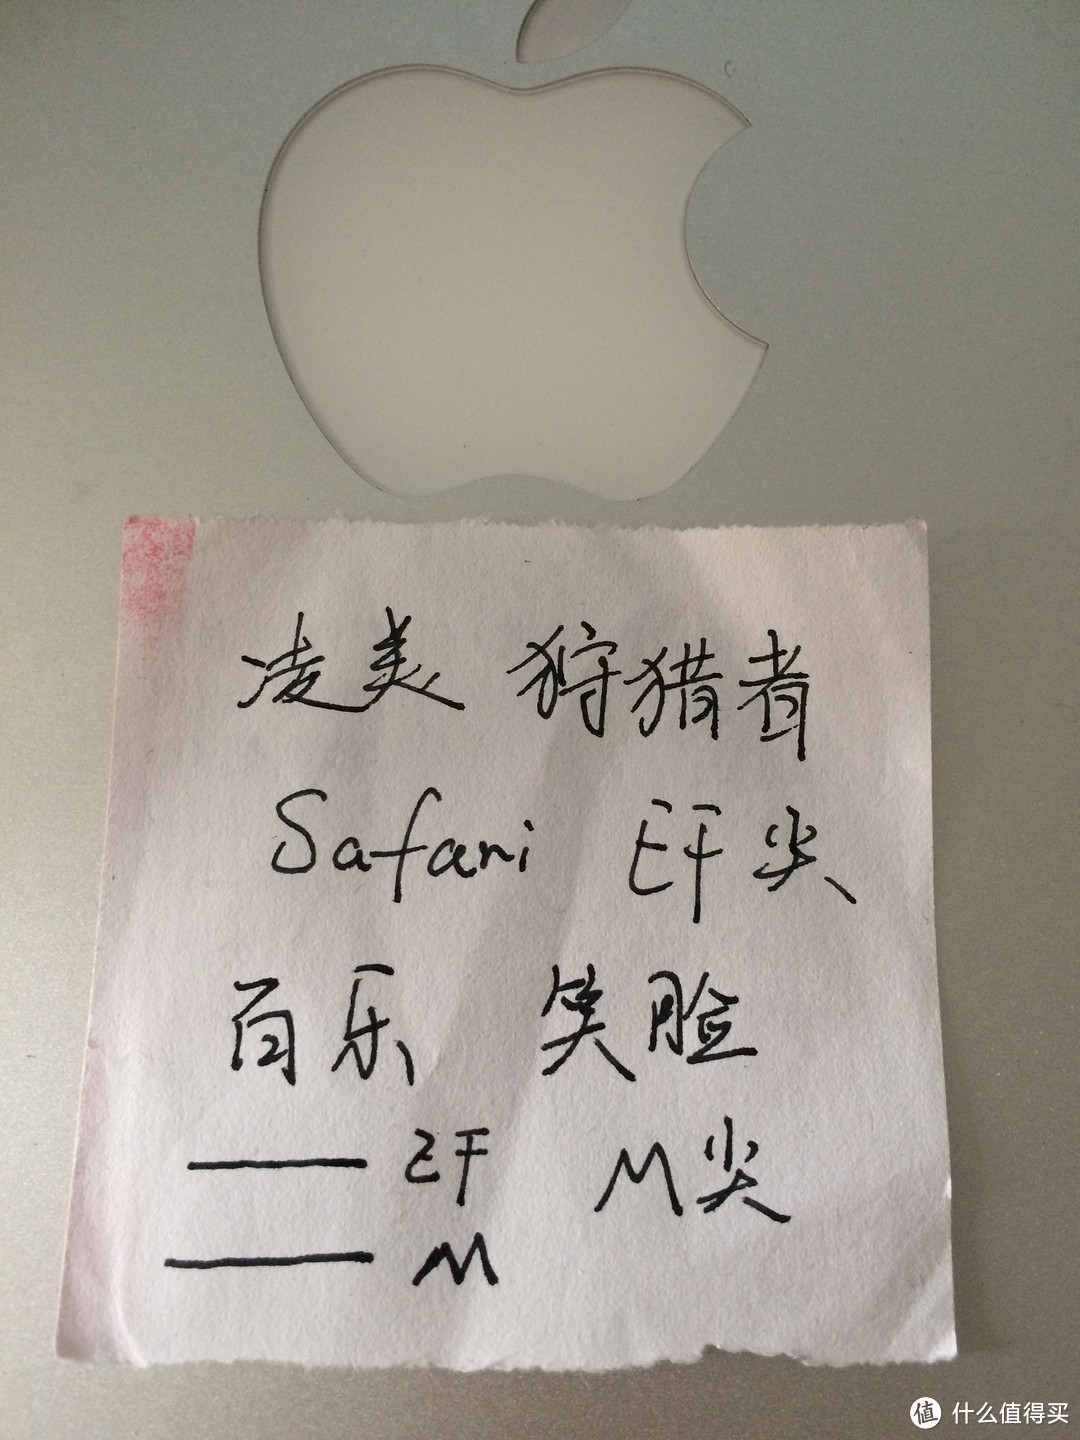 凌美 狩猎者
Safari EF尖
百乐 笑脸
EF M尖
M
值 什么值得买